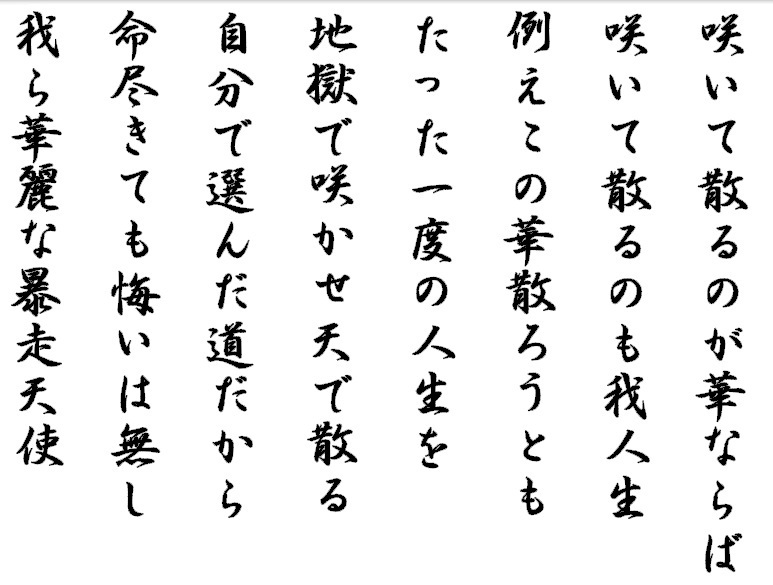 咲いて散るのが華ならば
咲いて散るのも我人生
例えこの華散ろうとも
たった一度の人生を
地獄で咲かせ天で散る
自分で選んだ道だから
命尽きても悔いは無し
我ら華麗な暴走天使